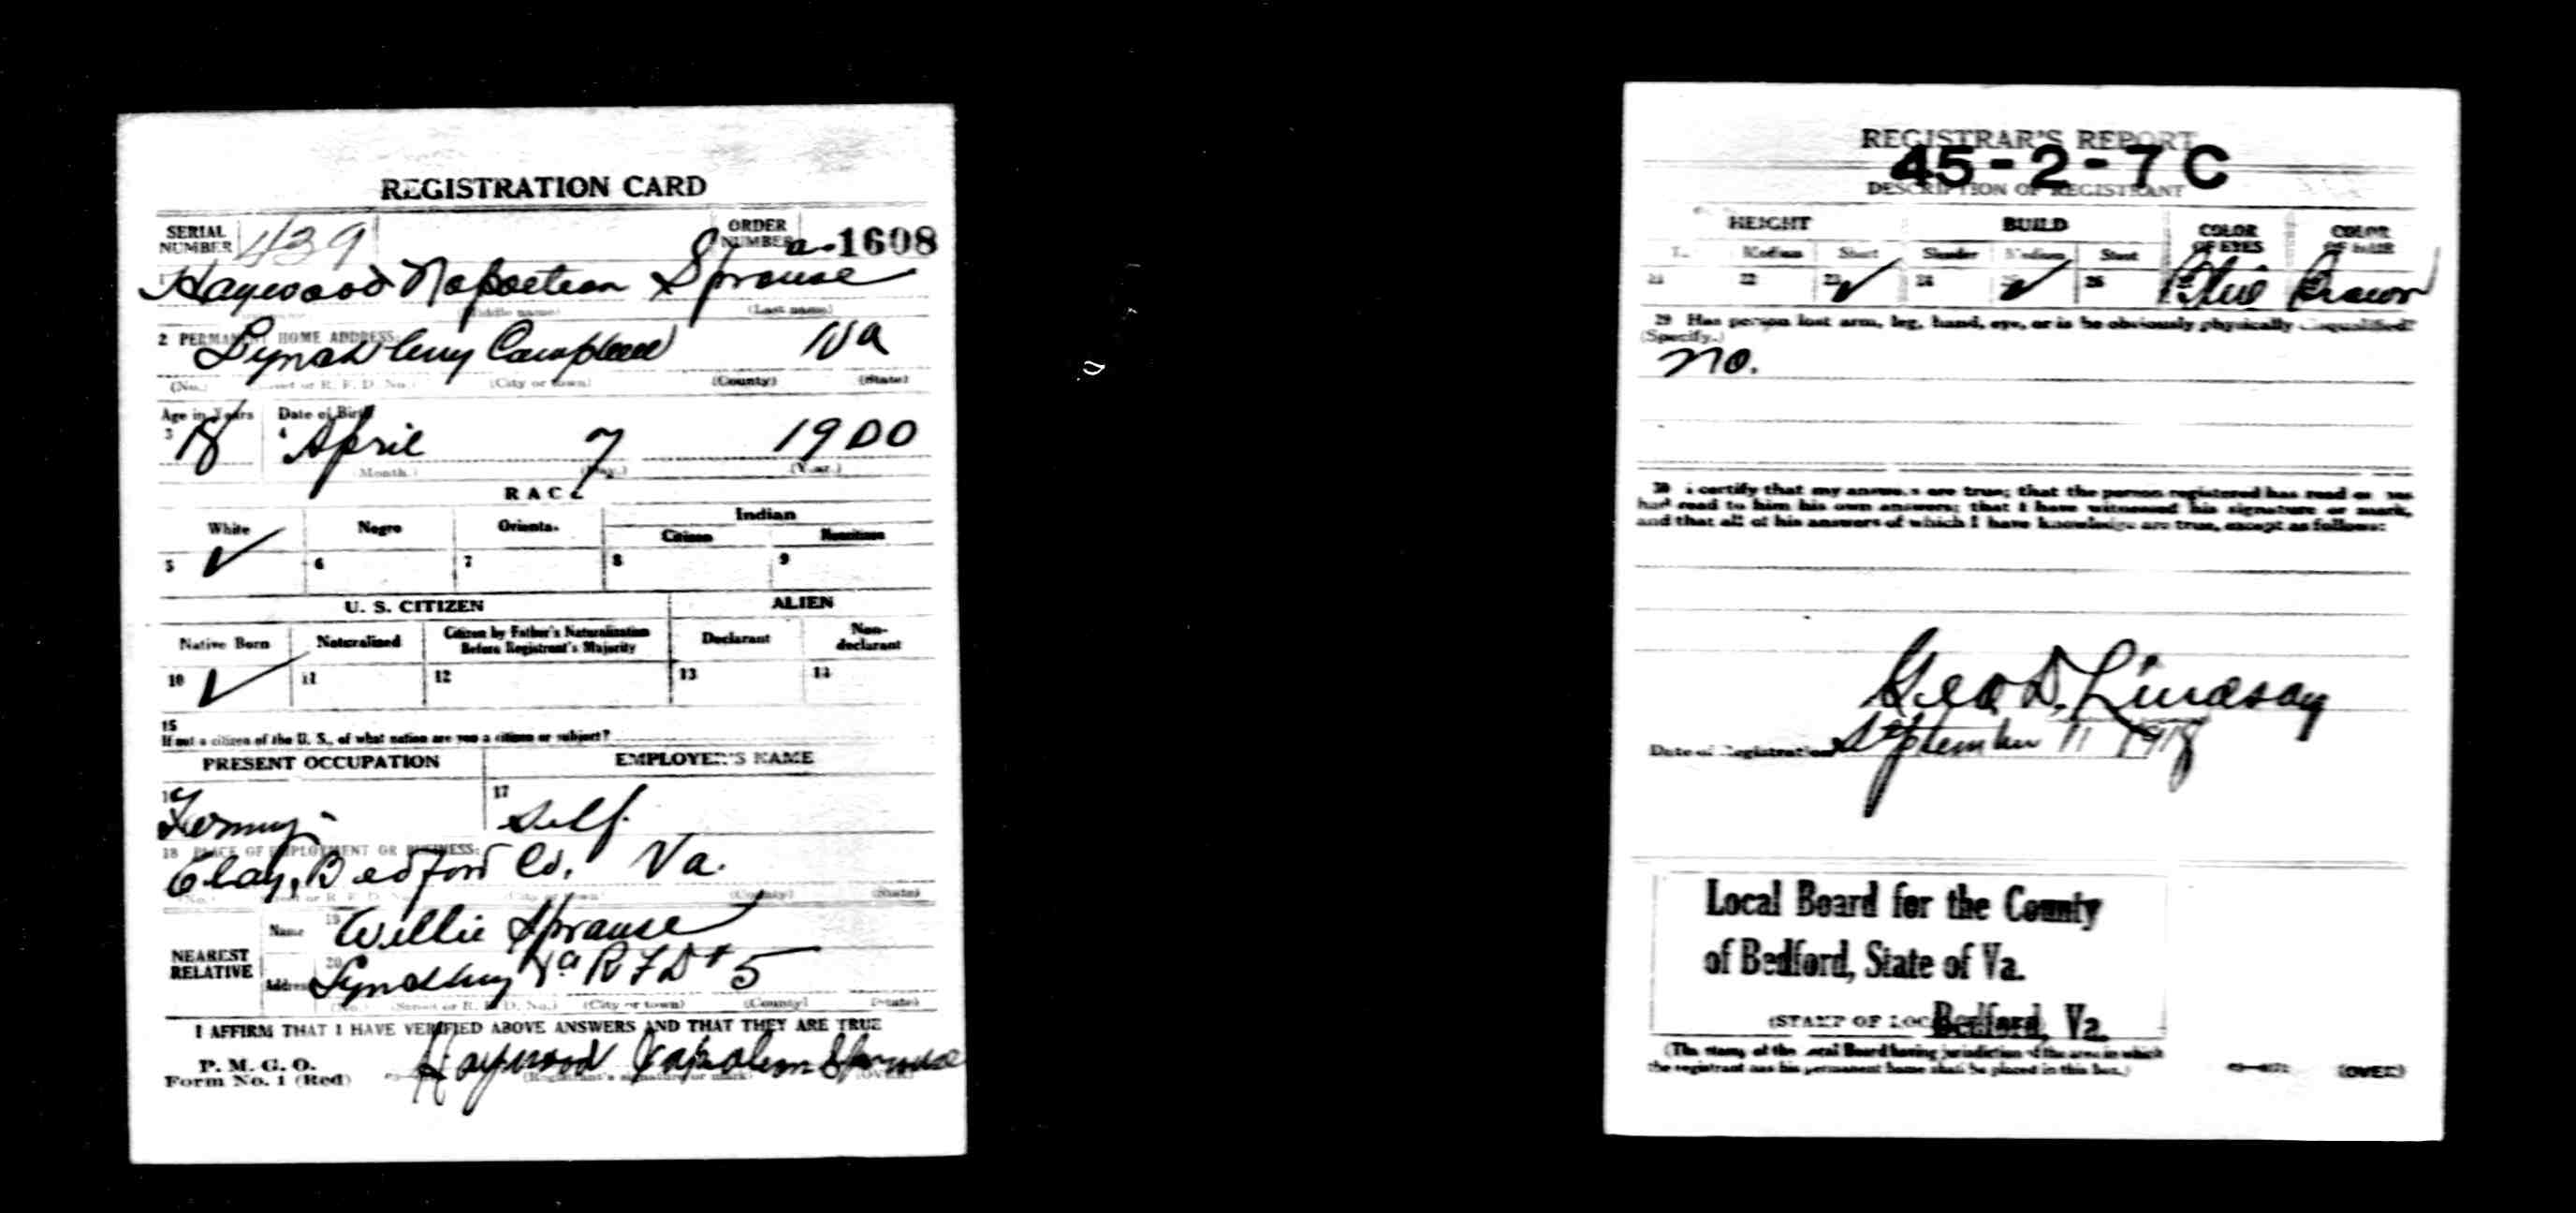 REGISTRATION CARD
SERIAL NUMBER 439 ORDER NUMBER a-1608
1 Haywood Napoleon Sprouse
(Middle name) (Last name)
2 PERMANENT HOME ADDRESS:
Lynchburg Campbell Va
(No.) (Street or R. F. D. No.) (City or town) (County) (State)
Age in Years Date of Birth
3 18 4 April 7 1900
(Month.) (Day.) (Year.)
RACE
White Negro Oriental Indian
Citizen Noncitizen
5 ✓ 6 7 8 9
U. S. CITIZEN ALIEN
Native Born Naturalized Citizen by Father's Naturalization Before Registrant's Majority Declarant Non-declarant
10 ✓ 11 12 13 14
15
If not a citizen of the U. S., of what nation are you a citizen or subject?
PRESENT OCCUPATION EMPLOYER'S NAME
16 17
Farming Self.
18 PLACE OF EMPLOYMENT OR BUSINESS:
Clay, Bedford Co. Va.
(No.) (Street or R. F. D. No.) (City or town) (County) (State)
NEAREST RELATIVE Name 19 Willie Sprouse
Address 20 Lynchburg Va R F D # 5
(No.) (Street or R. F. D. No.) (City or town) (County) (State)
I AFFIRM THAT I HAVE VERIFIED ABOVE ANSWERS AND THAT THEY ARE TRUE
P. M. G. O.
Form No. 1 (Red) Haywood Napoleon Sprouse
(Registrant's signature or mark) (OVER)
REGISTRAR'S REPORT
45-2-7 C
DESCRIPTION OF REGISTRANT
HEIGHT BUILD COLOR OF EYES COLOR OF HAIR
Medium Short Slender Medium Stout
21 22 23 ✓ 24 25 ✓ 26 Blue Brown
29 Has person lost arm, leg, hand, eye, or is he obviously physically disqualified?
(Specify.)
no.
30 I certify that my answers are true; that the person registered has read or has
had read to him his own answers; that I have witnessed his signature or mark,
and that all of his answers of which I have knowledge are true, except as follows:
Geo D. Lindsay
Date of Registration September 11 1918
Local Board for the County
of Bedford, State of Va.
Bedford, Va.
(STAMP OF LOC
(The stamp of the Local Board having jurisdiction of the area in which
the registrant has his permanent home shall be placed in this box.)
(OVER)